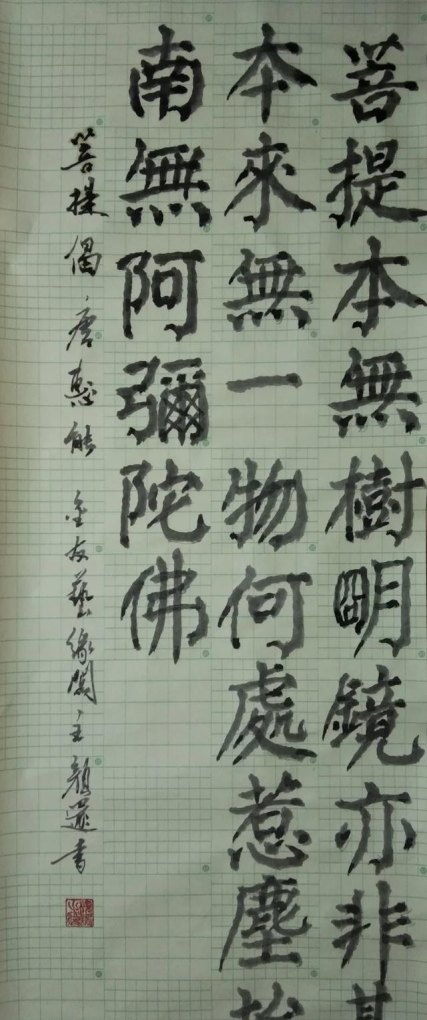 菩提本無樹明鏡亦非
本來無一物何處惹塵
南無阿彌陀佛
菩提偈 唐惠能 友藝緣閣主顏書